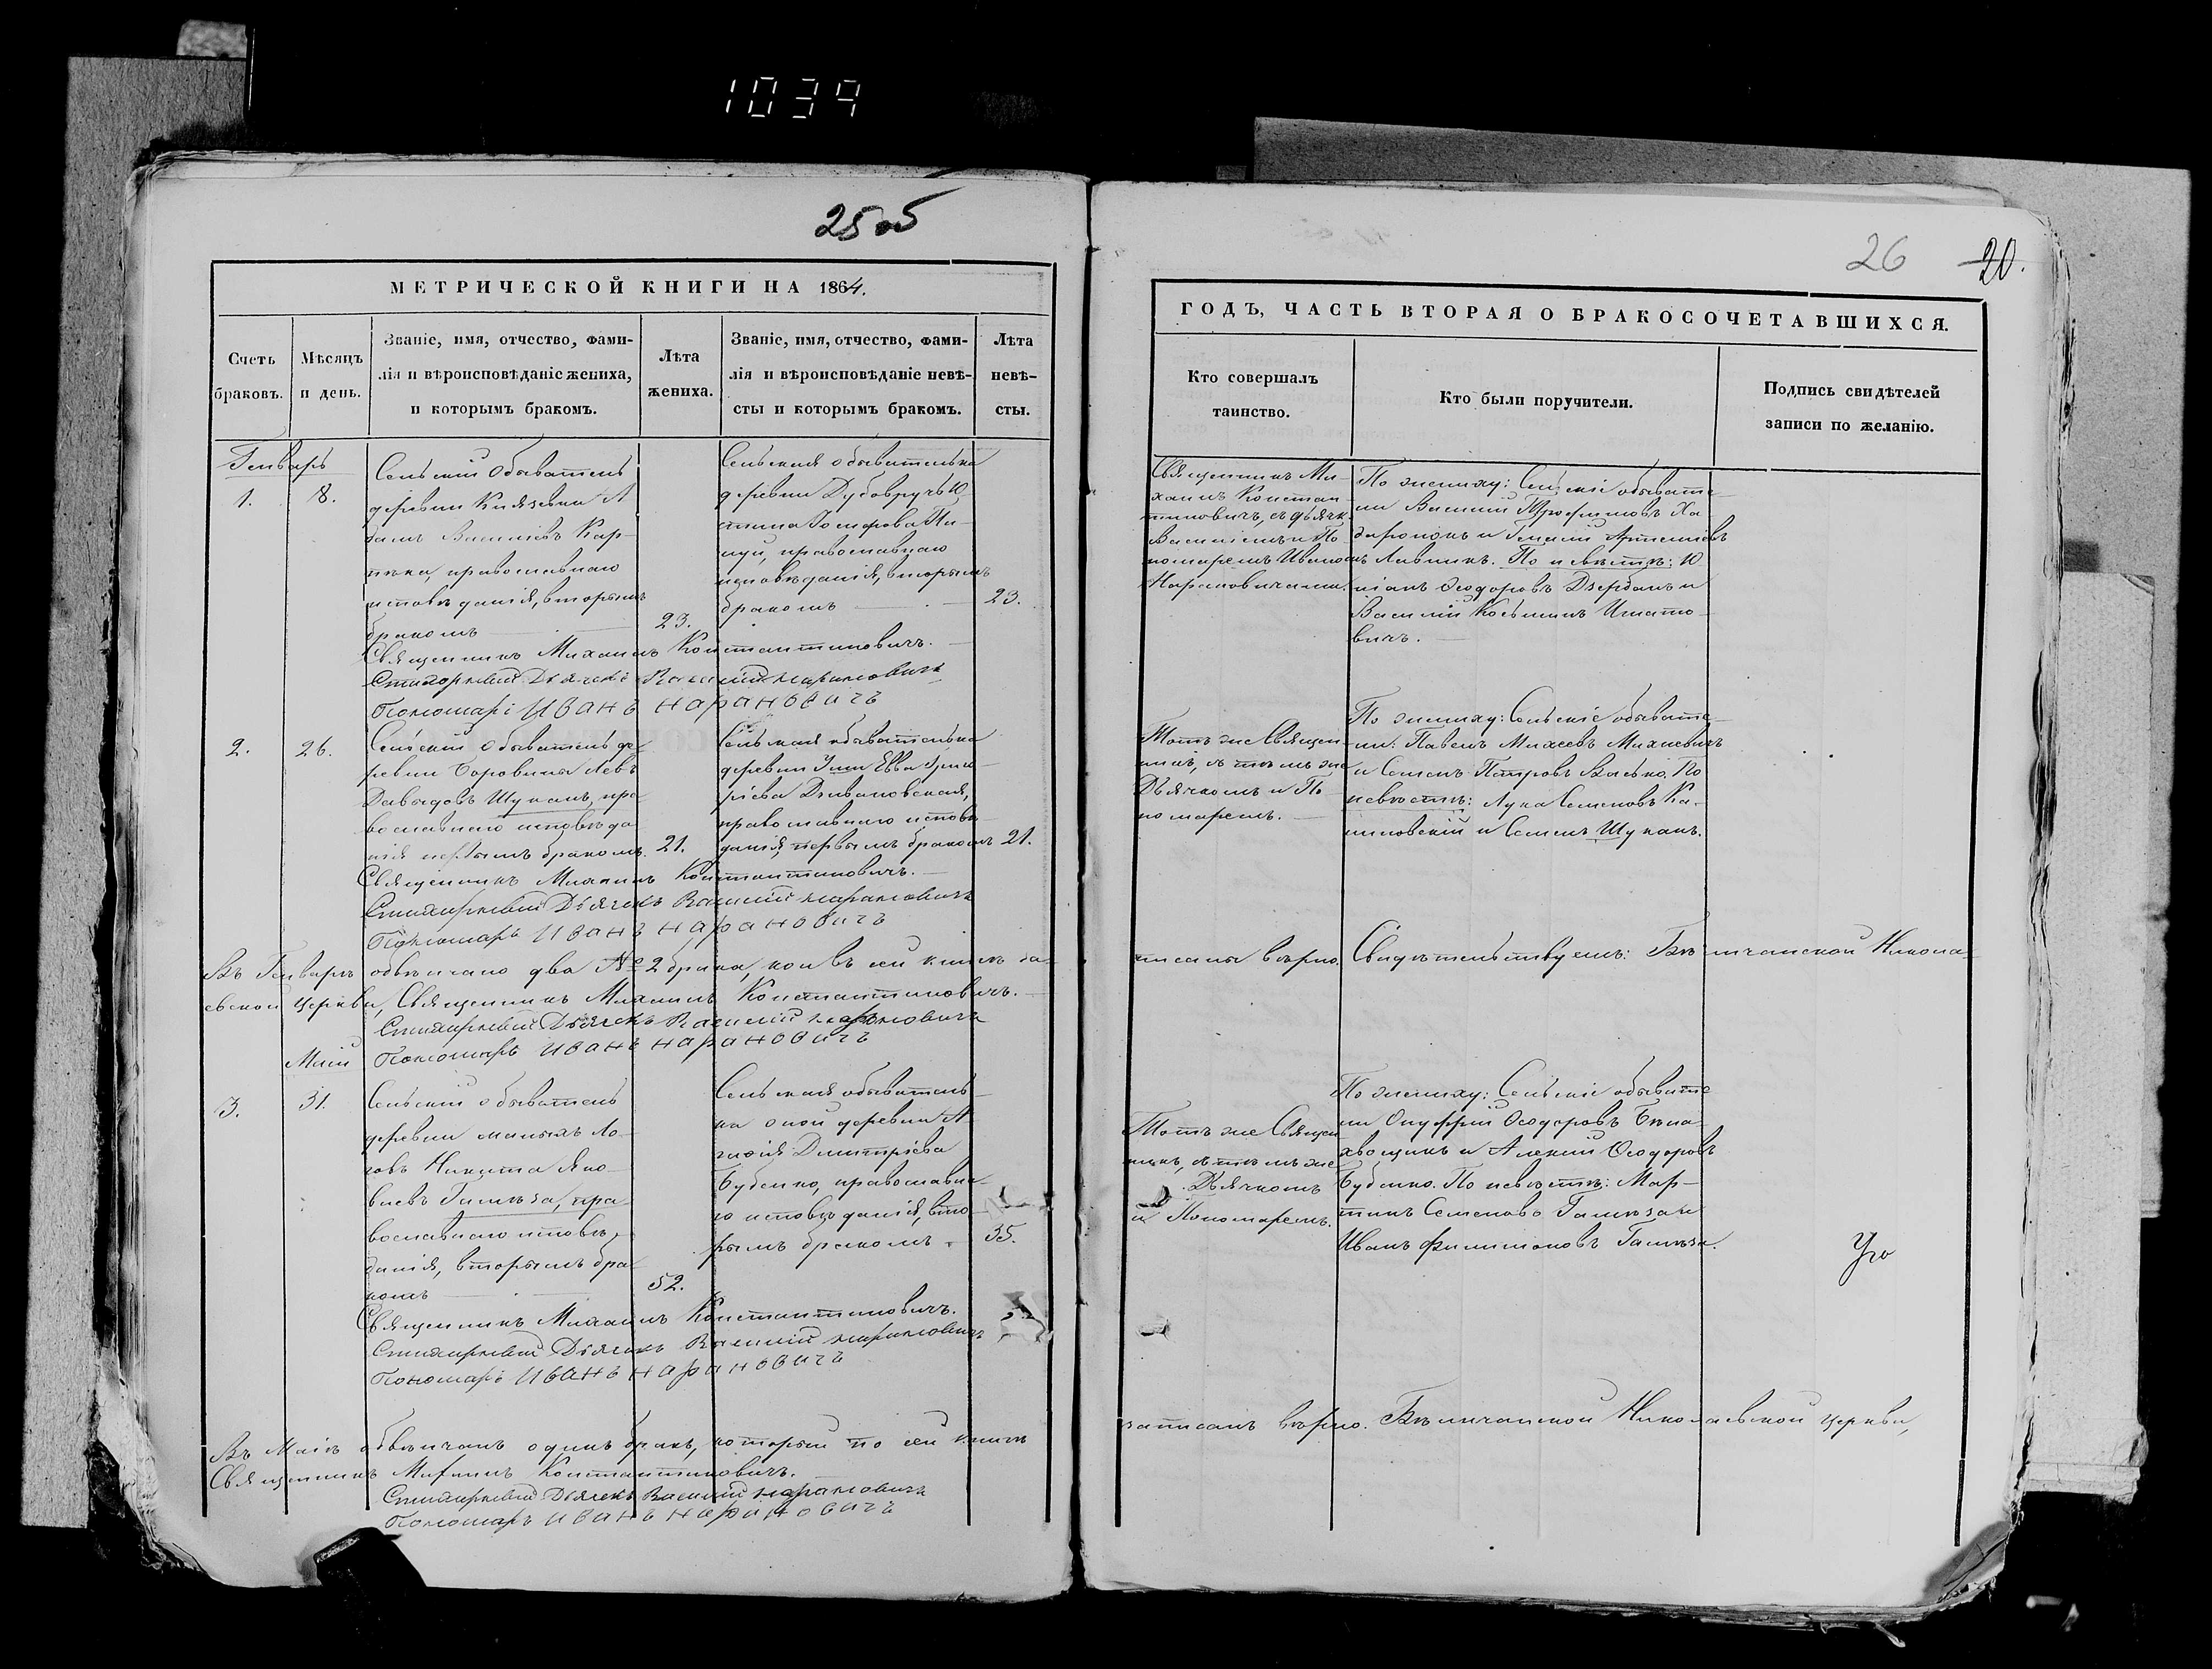 1034
25 об
МЕТРИЧЕСКОЙ КНИГИ НА 1864.
Счетъ
браковъ.
Мѣсяцъ
и день.
Званіе, имя, отчество, фами-
лія и вѣроисповѣданіе жениха,
и которымъ бракомъ.
Лѣта
жениха.
Званіе, имя, отчество, фами-
лія и вѣроисповѣданіе невѣ-
сты и которымъ бракомъ.
Лѣта
невѣ-
сты.
Генварь
1.
8.
Сельскій Обыватель
деревни Князевки А
дамъ Василіевъ Кар-
православнаго
исповѣданія, вторымъ
бракомъ
23.
Сельская обывателька
деревни Ю
стина Іосифова
православнаго
исповѣданія, вторымъ
бракомъ
23.
Священникъ Михаилъ Константиновичъ.
Стихарный Дьячекъ Василій Нарановичъ
Пономарь Иванъ Нарановичъ
2.
26.
Сельскій Обыватель де-
ревни Боровины Левъ
Давыдовъ Шуканъ, пра-
вославнаго исповѣда
нія первымъ бракомъ.
21.
Сельская обывателька
деревни Евва Григо-
ріева
православнаго исповѣ
данія, первымъ бракомъ
21.
Священникъ Михаилъ Константиновичъ.
Стихарный Дьячекъ Василій Нарановичъ
Пономарь Иванъ Нарановичъ
Въ Генварѣ обвѣнчано два № 2 брака, кои въ сей книгѣ за-
евской церкви, Священникъ Михаилъ Константиновичъ.
Стихарный Дьячекъ Василій Нарановичъ
Пономарь Иванъ Нарановичъ
Маій
3.
31.
Сельскій обыватель
деревни малыхъ Ло-
говъ Никита Яко-
влевъ Галнѣза, пра-
вославнаго исповѣ-
данія, вторымъ бра-
комъ
52.
Сельская обыватель-
ка оной деревни А-
Димитріева
Буденко, православна-
го исповѣданія, вто-
рымъ бракомъ
35.
Священникъ Михаилъ Константиновичъ.
Стихарный Дьячекъ Василій Нарановичъ
Пономарь Иванъ Нарановичъ
Въ Маіѣ обвѣнчанъ одинъ бракъ, который по сей книгѣ
Священникъ Михаилъ Константиновичъ.
Стихарный Дьячекъ Василій Нарановичъ
Пономарь Иванъ Нарановичъ
26
20.
ГОДЪ, ЧАСТЬ ВТОРАЯ О БРАКОСОЧЕТАВШИХСЯ.
Кто совершалъ
таинство.
Кто были поручители.
Подпись свидѣтелей
записи по желанію.
Священникъ Ми-
хаилъ Констан-
тиновичъ, съ дьячк.
Василіемъ и По-
номаремъ Иваномъ
Нарановичами.
По жениху: Сельскіе обывате-
ли Василій Трофимовъ Ха
и Артеміевъ
По невѣстѣ: Ю
ліанъ Ѳеодоровъ Дзербанъ и
Василій Косьминъ Игнато-
вичъ.
Тотъ же Священ-
никъ, съ тѣмъ же
Дьячкомъ и По-
номаремъ.
По жениху: Сельскіе обывате-
ли: Павелъ Михеевъ Михневичъ
и Семенъ Петровъ Васько. По
невѣстѣ: Лука Семеновъ Ка-
и Семенъ Шуканъ.
писаны вѣрно. Свидѣтельствуемъ: Николa-
Тотъ же Священ-
никъ, съ тѣмъ же
Дьячкомъ
и Пономаремъ.
По жениху: Сельскіе обывате
ли Онуфрій Ѳеодоровъ Бѣло-
хвощикъ и Алексій Ѳеодоровъ
Буденко. По невѣстѣ: Мар-
тинъ Семеновъ Галнѣза и
Иванъ Филимоновъ Галнѣза.
записанъ вѣрно. Николаевской церкви,